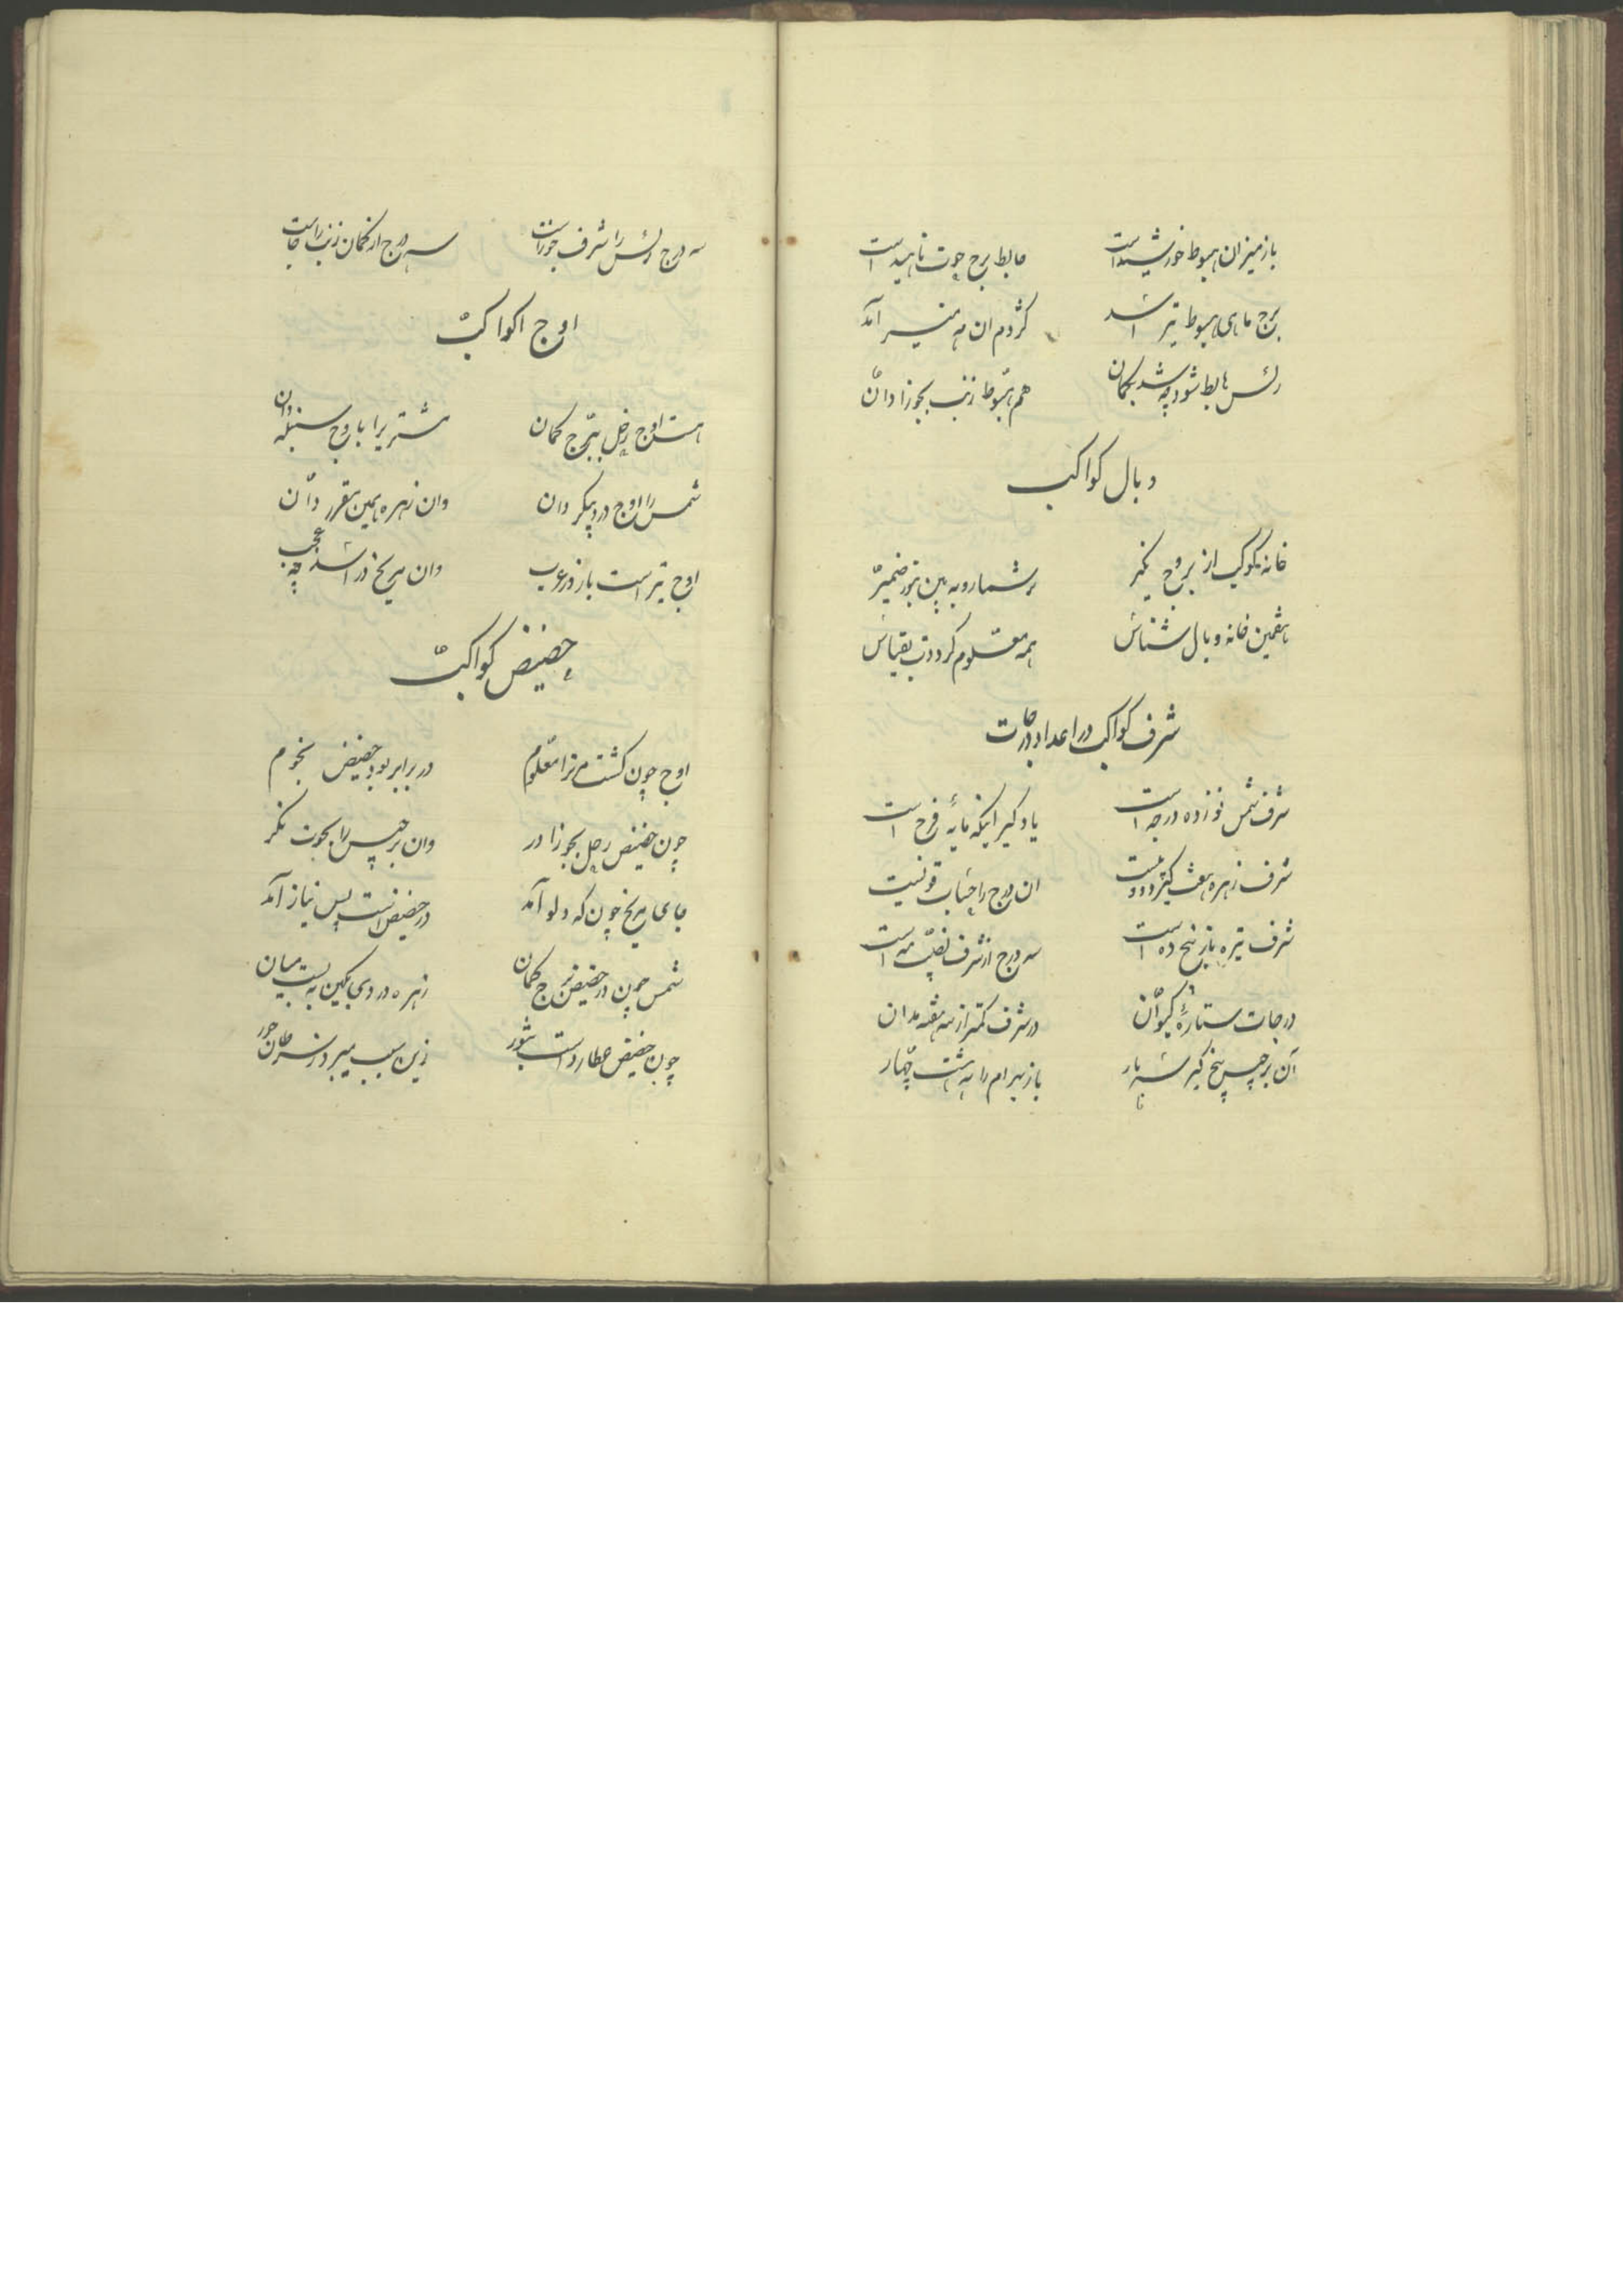 باز میزان هبوط خورشید است
هابط برج حوت ناهید است
برج ماهی هبوط تیر آمد
کژدم ان مه منیر آمد
راس هابط شود چه شد بکمان
هم هبوط ذنب بجوزا دان
وبال کواکب
خانه کوکب از بروج بگیر
بر شمار و به بین بنور ضمیر
هفتمین خانه وبال شناس
همه معلوم گرددت بقیاس
شرف کواکب در اعداد درجات
شرف شمس نوزده درجه است
یاد گیر اینکه مایه فرح است
شرف زهره هفت گیر و دو بیست
ان درج را حساب قونیست
شرف تیره باز پنج ده است
سه درج از شرف نصیب مه است
درجات ستاره کیوان
در شرف کمتر از سه هفته مدان
آن برجیس پنج گیر سه بار
باز بهرام را به هشت چهار
سه درج راس را شرف جوزاست
سه درج از کمان ذنب راست جاست
اوج اکواکب
هست اوج زحل ببرج کمان
مشتریرا باوج سنبله دان
شمس را اوج در دو پیکر دان
وان زهره همین مقرر دان
اوج تیر است باز در عقرب
وان مریخ در اسد چه عجب
حضیض کواکب
اوج چون گشت مر ترا معلوم
در برابر بود حضیض نجوم
چون حضیض زحل بجوزا در
وان برجیس را بحوت نگر
جای مریخ چون که دلو آمد
در حضیض است پس نیاز آمد
شمس چون در حضیض برج کمان
زهره در وی بکین به بست میان
چون حضیض عطارد است بثور
زین سبب میبرد ز سرطان جور